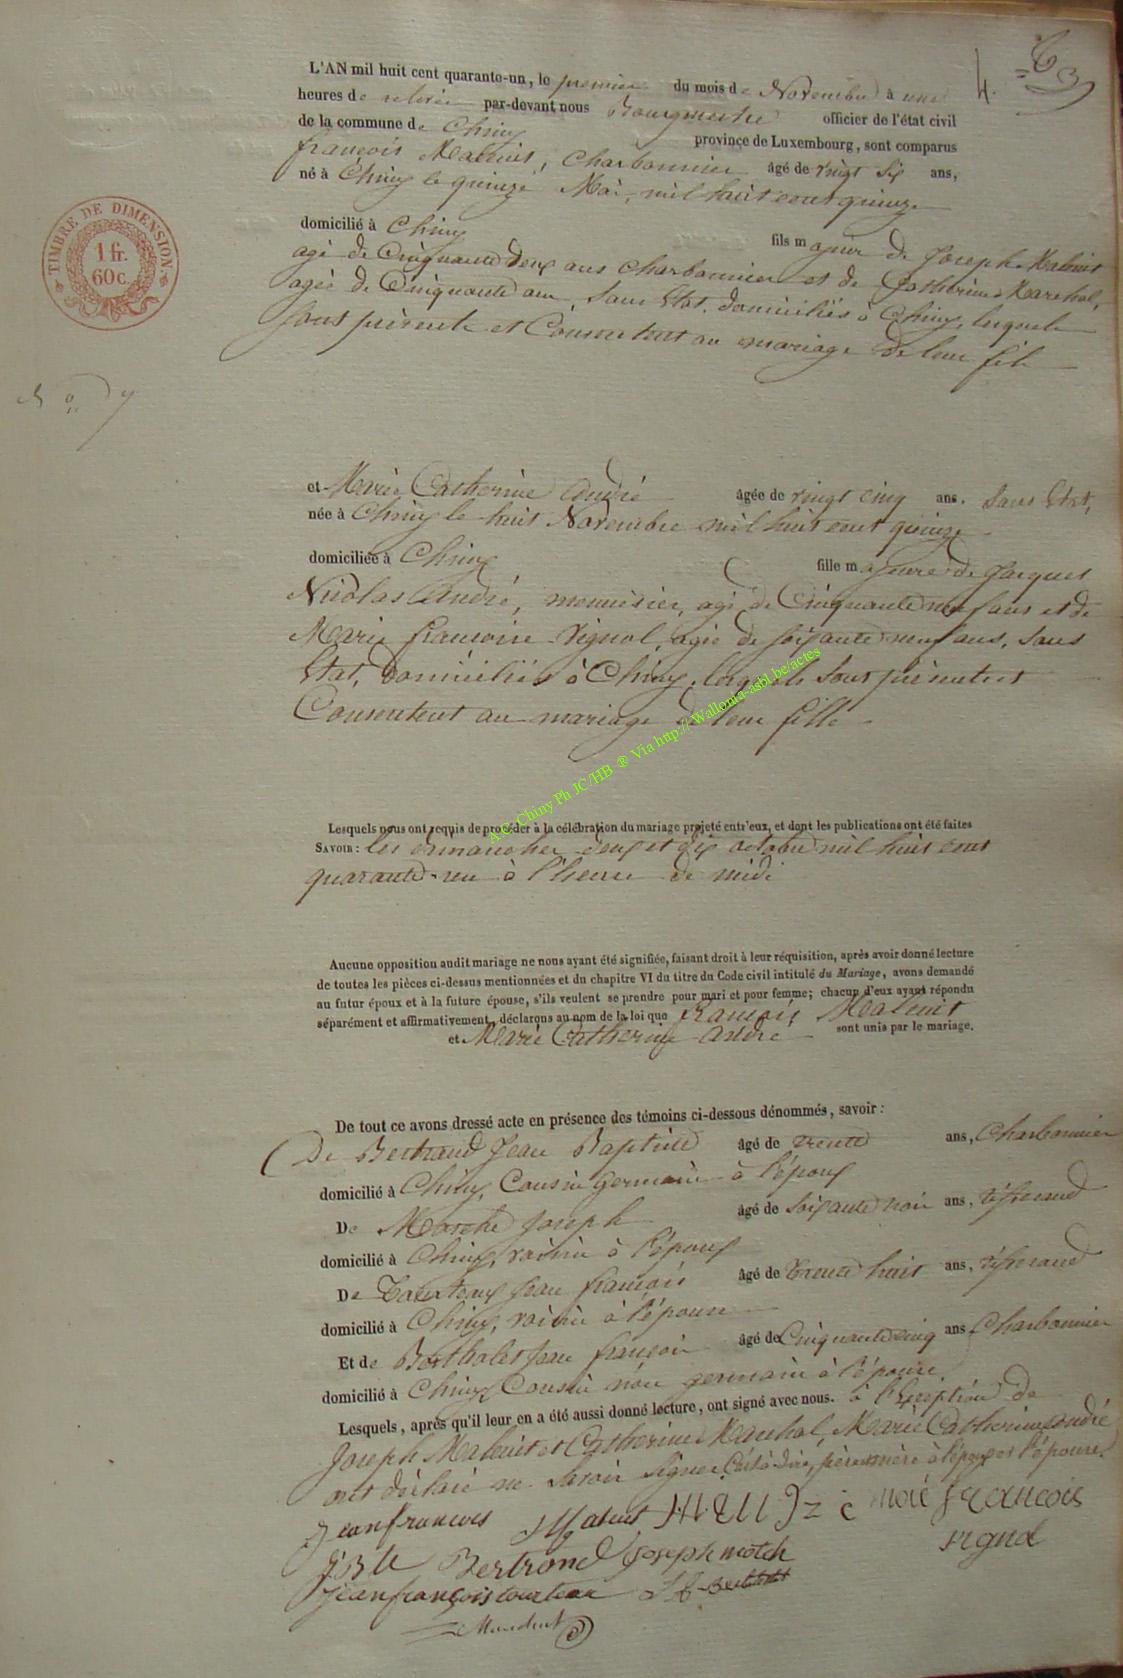 4. 3
L'AN mil huit cent quarante-un, le premier du mois de Novembre à une
heures de relevée par-devant nous Bourgmestre officier de l'état civil
de la commune de Chiny province de Luxembourg, sont comparus
françois Maleuit, Charbonnier âgé de vingt six ans,
né à Chiny le quinze Mai, mil huit cent quinze
domicilié à Chiny fils majeur de Joseph Maleuit
agé de Cinquante deux ans charbonnier et de Catherine Marchal,
agée de Cinquante ans, Sans Etat, domiciliés à Chiny, lesquels
sont présents et Consentent au mariage de leur fils
TIMBRE DE DIMENSION
1 fr.
60 c.
No 7
et Marie Catherine André âgée de vingt cinq ans. Sans Etat,
née à Chiny le huit Novembre mil huit cent quinze
domiciliée à Chiny fille majeure de Jacques
Nicolas André, menuisier, agé de Cinquante neuf ans et de
Marie françoise Vignol, agée de soixante neuf ans, Sans
Etat, domiciliés à Chiny, lesquels sont présents et
Consentent au mariage de leur fille
A.C. Chiny Ph JC/HB ® Via http://Wallonia-asbl.be/actes
Lesquels nous ont requis de procéder à la célébration du mariage projeté entr'eux, et dont les publications ont été faites
SAVOIR : les dimanches deux et dix octobre mil huit cent
quarante-un à l'heure de midi
Aucune opposition audit mariage ne nous ayant été signifiée, faisant droit à leur réquisition, après avoir donné lecture
de toutes les pièces ci-dessus mentionnées et du chapitre VI du titre du Code civil intitulé du Mariage, avons demandé
au futur époux et à la future épouse, s'ils veulent se prendre pour mari et pour femme; chacun d'eux ayant répondu
séparément et affirmativement, déclarons au nom de la loi que françois Maleuit
et Marie Catherine André sont unis par le mariage.
De tout ce avons dressé acte en présence des témoins ci-dessous dénommés, savoir :
De Bertrand Jean Baptiste âgé de trente ans, Charbonnier
domicilié à Chiny, Cousin germain à l'époux
De Joseph âgé de soixante trois ans, tisserand
domicilié à Chiny, voisin à l'époux
De Tourteau Jean françois âgé de trente huit ans, tisserand
domicilié à Chiny, voisin à l'épouse
Et de Bertholet Jean françois âgé de Cinquante cinq ans Charbonnier
domicilié à Chiny Cousin non germain à l'épouse.
Lesquels, après qu'il leur en a été aussi donné lecture, ont signé avec nous. à l'Exception de
Joseph Maleuit et Catherine Marchal, Marie Catherine André
ont déclaré ne Savoir Signer C'est à dire, père et mère à l'époux et l'épouse.
Jeanfrancois Maleuit francois
vignol
JBte Bertrand Joseph
jeanfrançois tourteau